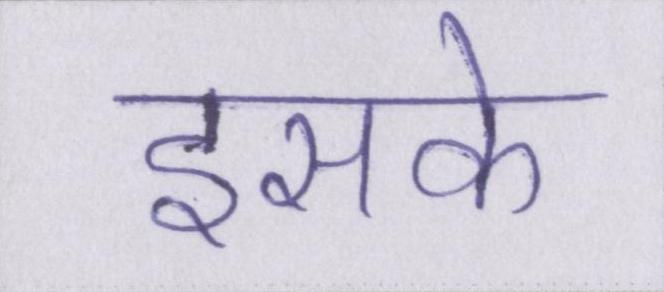 इसके